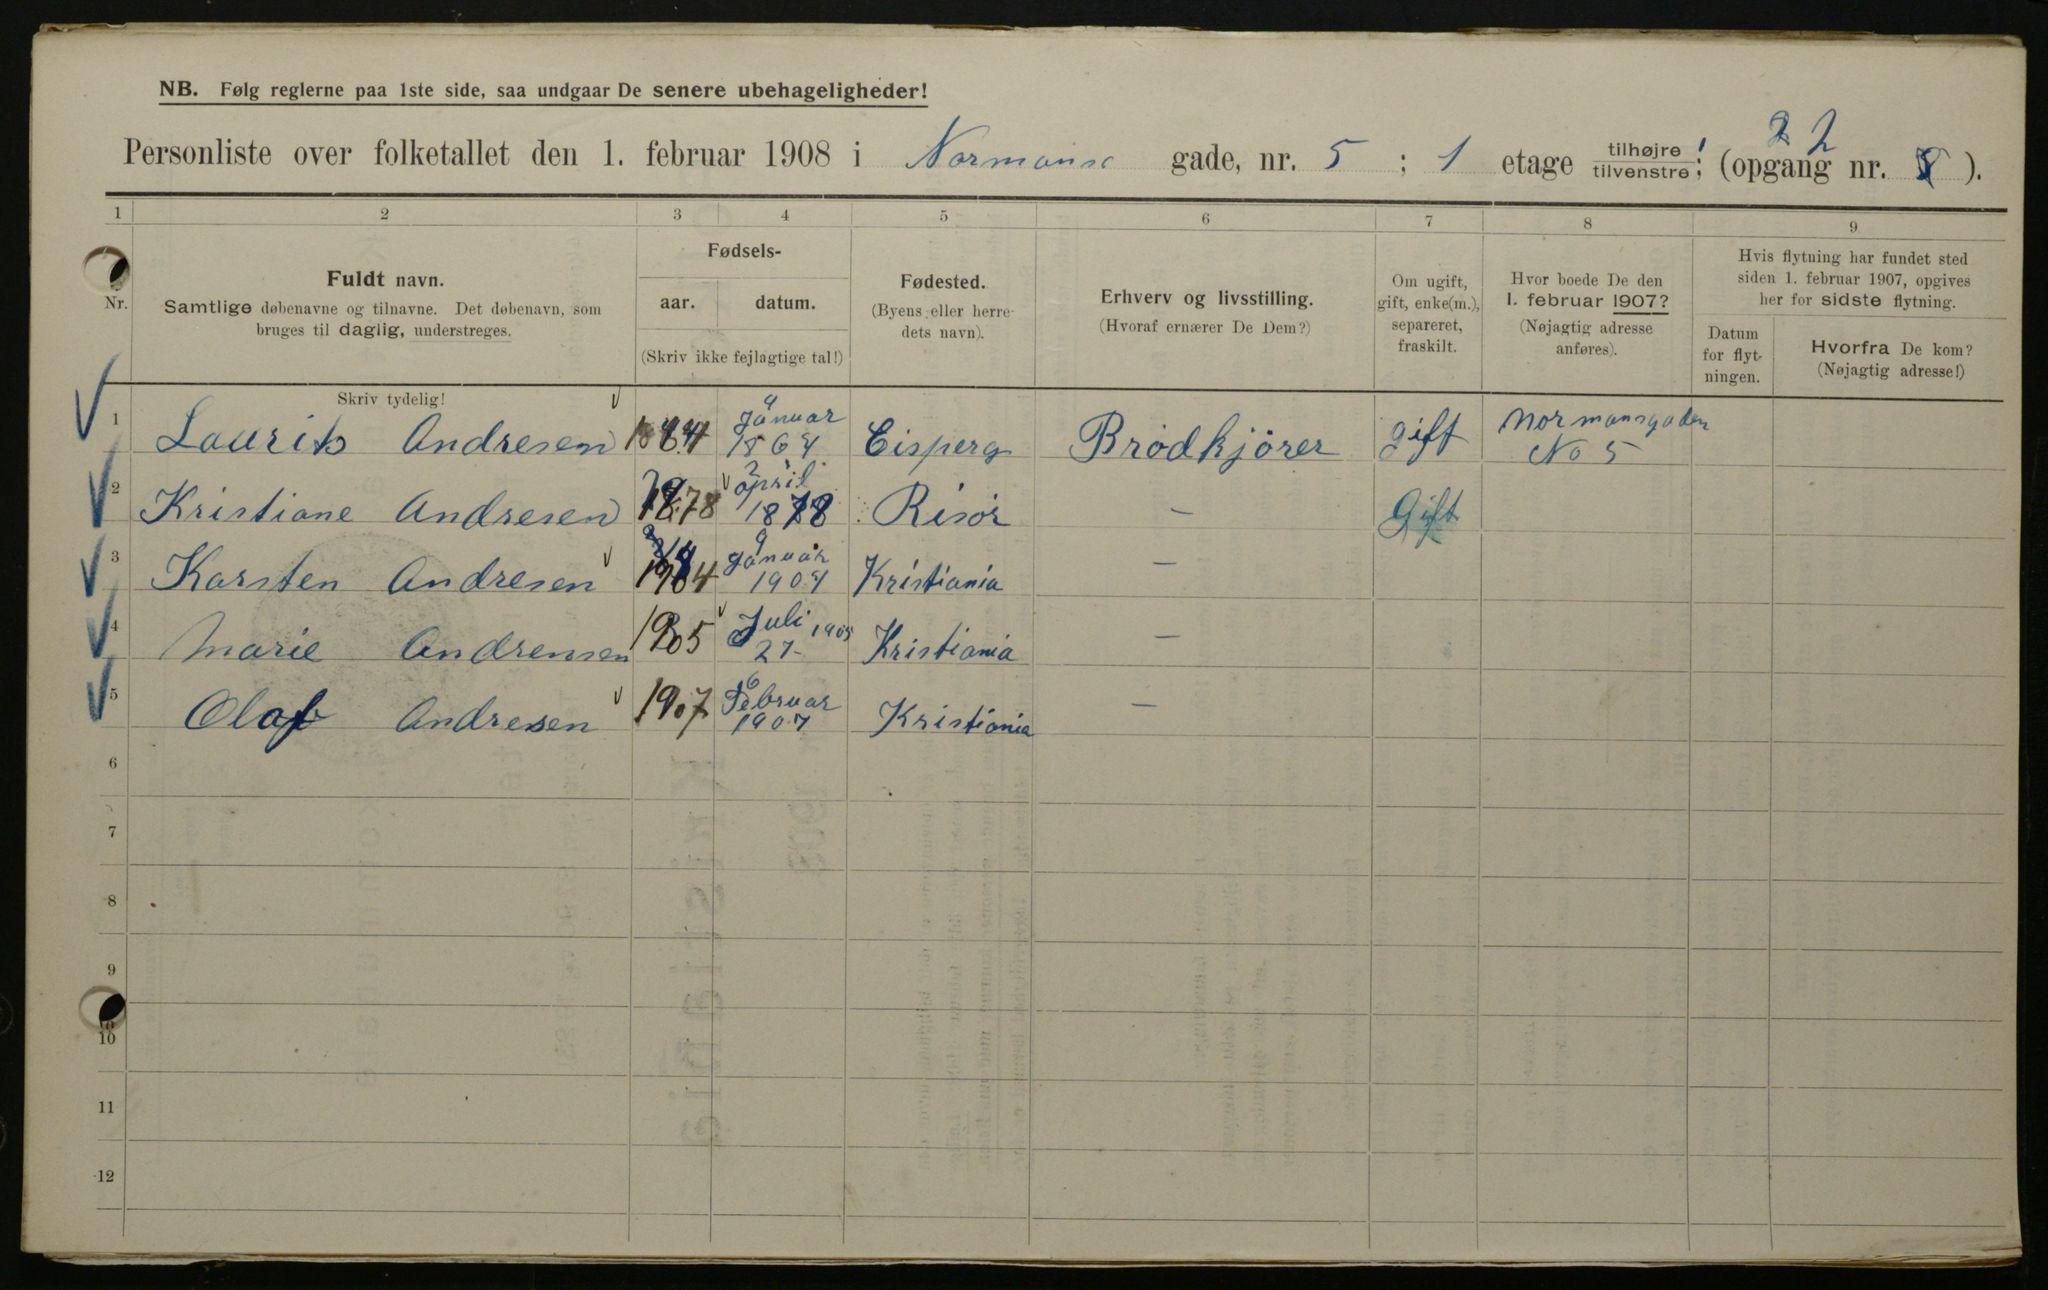 NB. Følg reglerne paa 1ste side, saa undgaar De senere ubehageligheder!
Personliste over folketallet den 1. februar 1908 i Normanns gade, nr. 5 ; 1 etage tilhøjre tilvenstre; (opgang nr. 22 ).
1 2 3 4 5 6 7 8 9
Nr.
Fuldt navn.
Samtlige døbenavne og tilnavne. Det døbenavn, som
bruges til daglig, understreges.
Skriv tydelig!
Fødsels-
aar. datum.
(Skriv ikke fejlagtige tal!)
Fødested.
(Byens eller herre-
dets navn).
Erhverv og livsstilling.
(Hvoraf ernærer De Dem?)
Om ugift,
gift, enke(m.),
separeret,
fraskilt.
Hvor boede De den
1. februar 1907?
(Nøjagtig adresse
anføres).
Hvis flytning har fundet sted
siden 1. februar 1907, opgives
her for sidste flytning.
Datum
for flyt-
ningen.
Hvorfra De kom?
(Nøjagtig adresse!)
1 Laurits Andresen 9 Januar 1864 Eisperg Brødkjører gift Normansgaden No 5
2 Kristiane Andresen 1878 2 april 1878 Risør – Gift
3 Karsten Andresen 1904 9 Januar 1904 Kristiania –
4 Marie Andrensen 1905 Juli 1905 27 Kristiania –
5 Olaf Andresen 1907 6 Februar 1907 Kristiania –
6
7
8
9
10
11
12